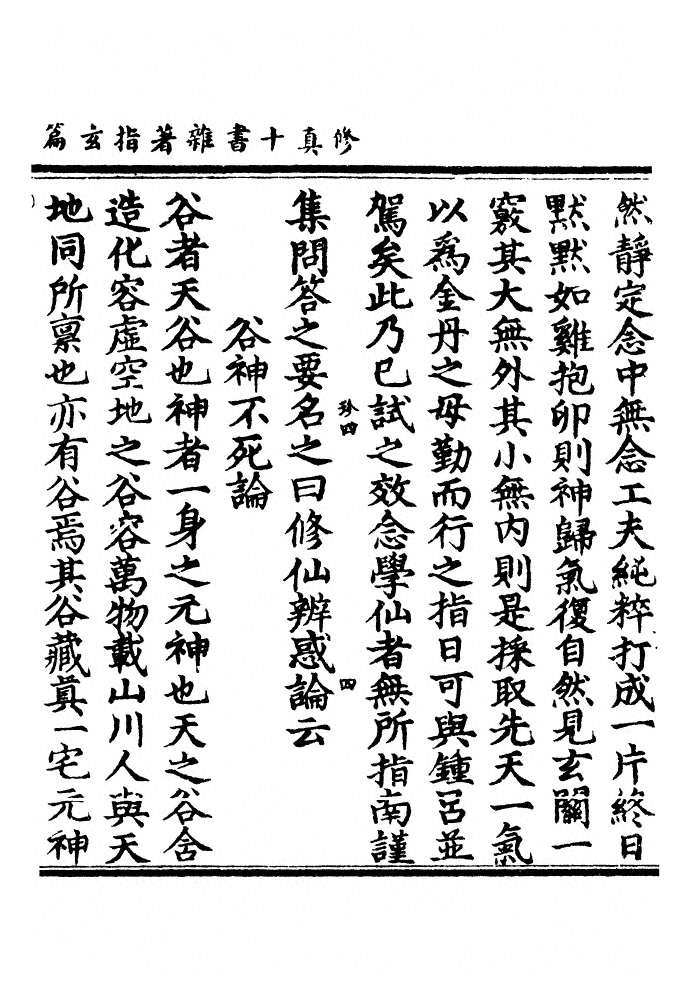 修真十書雜著指玄篇
然靜定念中無念工夫純粹打成一片終日
黙黙如雞抱卵則神歸氣復自然見玄關一
竅其大無外其小無内則是採取先天一氣
以爲金丹之母勤而行之指日可與鍾呂並
駕矣此乃已試之效念學仙者無所指南謹
集問答之要名之曰修仙辨惑論云
珍四
四
谷神不死論
谷者天谷也神者一身之元神也天之谷含
造化容虛空地之谷容萬物載山川人與天
地同所禀也亦有谷焉其谷藏眞一宅元神